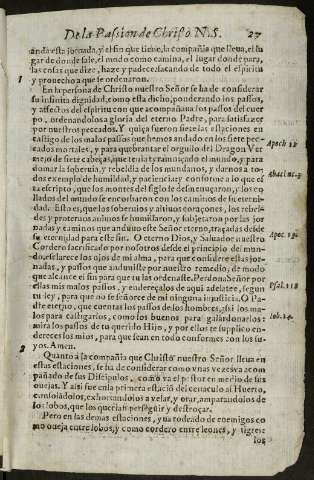 De la Passion de Christo N.S. 27
anda esta jornada, y el fin que tiene, la compañia que lleua, el lu
gar de donde sale, el modo como camina, el lugar donde para,
las cosas que dize, haze y padece, sacando de todo el espiritu
y prouecho a que se ordenaron.
1 En la persona de Christo nuestro Señor se ha de considerar
su infinita dignidad, como esta dicho, ponderando los passos,
y affectos del espiritu con que acompañaua los passos del cuer
po, ordenandolos a gloria del eterno Padre, para satisfazer
por nuestros peccados. Y quiça fueron siete las estaciones en
castigo de los malos passos que hemos andado en los siete pec-
cados mortales, y para quebrantar el orgullo del Dragon Ver
mejo de siete cabeças, que tenia tyranizado el mundo, y para
Apoch 12
domar la soberuia, y rebeldia de los mundanos, y darnos a to-
dos exemplo de humildad, y paciencia: y conforme a lo que es
Abacuc 3
ta escripto, que los montes del siglo se desmenuzaron, y los co
llados del mundo se encorbaron con los caminos de su eterni-
dad. Esto es, que los soberuios y altiuos coraçones, los rebel-
des y proteruos animos se humillaron, y subjetaron por las jor
nadas y caminos que anduuo este Señor eterno, traçadas desde
su eternidad para este fin. O eterno Dios, y Saluador nuestro,
Apoc. 13.
Cordero sacrificado por nosotros desde el principio del mun-
do, esclarece los ojos de mi alma, para que considere estas jor
nadas, y passos que anduuiste por nuestro remedio, de modo
que alcance el fin para que tu las ordenaste. Perdona Señor por
ellas mis malos passos, y endereçalos de aqui adelante, segun
Psal. 118
tu ley, para que no se señoree de mi ninguna injusticia. O Pa-
dre eterno, que cuentas los passos de los hombres, assi los ma-
los para castigarlos, como los buenos para galardonarlos:
Iob. 14.
mira los passos de tu querido Hijo, y por ellos te suplico en-
dereces los mios, para que sean en todo conformes con los su-
yos. Amen.
2 Quanto à la compañia que Christo nuestro Señor lleua en
estas estaciones, se ha de considerar como vnas vezes va acom
pañado de sus Discipulos, como va el pastor en medio de sus
ouejas. Y assi fue en la primera estació del cenaculo al Huerto,
consolandolos, exhortandolos a velar, y orar, amparandolos de
los lobos, que los querian perseguir y destroçar.
Pero en las demas estaciones, yua rodeado de enemigos co
mo oueja entre lobos, y como cordero entre leones, y tigres:
los